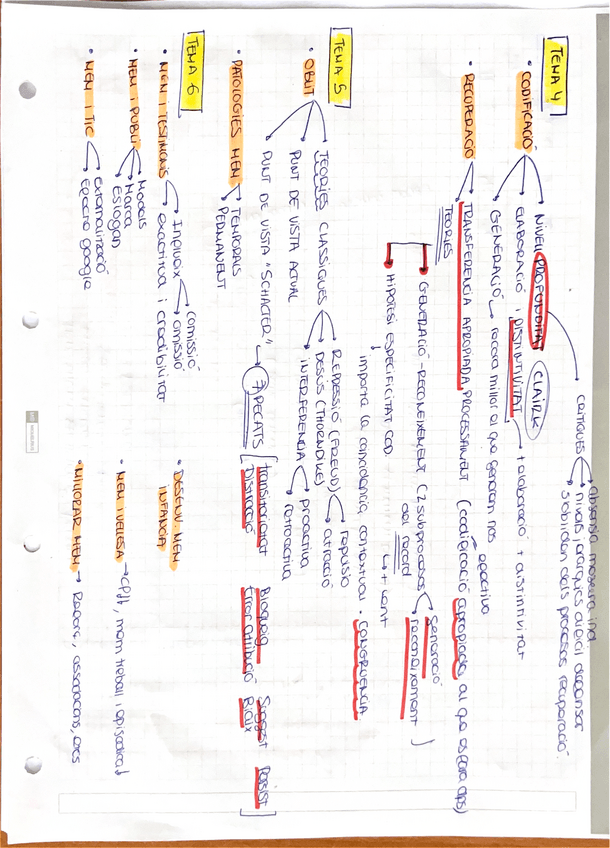 TEMA 4
• CODIFICACIÓ
NIVELL PROFUNDITAT CLAIRK
CRÍTIQUES
absència mesura ind.
nivells jeràrquics difícil
s'obliden dels processos recuperació.
ELABORACIÓ i DISTINTIVITAT → + elaboració + distintivitat
GENERACIÓ → record millor al que generem nos
+ efectiva
• RECUPERACIÓ
TRANSFERÈNCIA APROPIADA PROCESSAMENT (codificació apropiada al que es farà dps)
TEORIES
GENERACIÓ - RECONEIXEMENT (2 subprocesos
Generació
reconeixement)
del record
→ + lent
HIPÒTESI ESPECIFICITAT COD.
importa la coincidència contextual. CONGRUENCIA
TEMA 5
• OBLIT
TEORIES CLÀSSIQUES
REPRESSIÓ (FREUD)
repulsió
atracció
DESÚS (THORNDIKE)
INTERFERENCIA
proactiva
retroactiva
PUNT DE VISTA ACTUAL
PUNT DE VISTA "SCHACTER" → 7 PECATS
[Transitorietat Bloqueig Suggest Persist
Distracció Error atribució Biaix]
• PATOLOGIES MEM
TEMPORALS
PERMANENT
TEMA 6
• MEM I TESTIMONIS
Influeix
comissió
omissió
exactitud i credibilitat
• MEM I PUBLI
Models
Marca
Eslogan
• MEM I TIC
Externalització
Efecte google
• DESENV. MEM
INFANCIA
• MEM I VELLESA → CPfb, mem treball i episòdica ↓
• MILLORAR MEM → Repàs, associacions, etcs